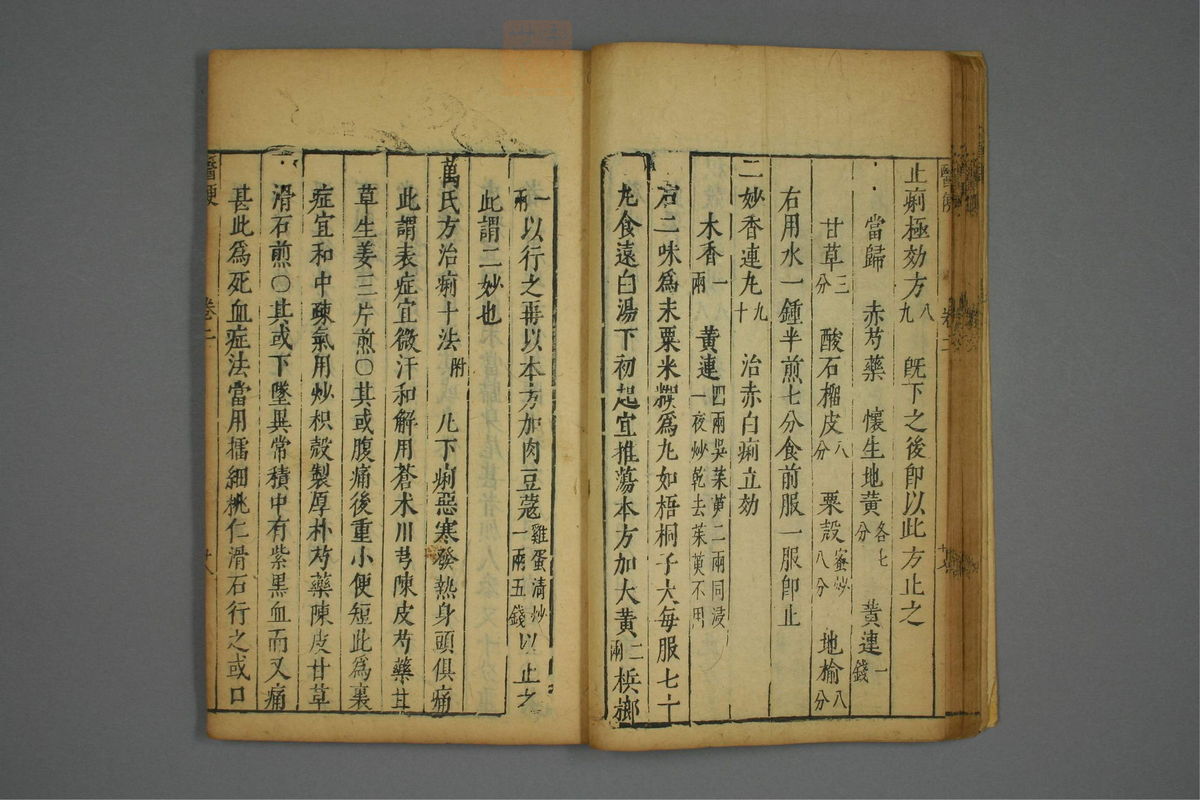 止痢極効方八九　既下之後即以此方止之
當歸　赤芍藥　懷生地黃各七分　黃連一錢
甘草三分　酸石榴皮八分　粟殼蜜炒八分　地榆八分
右用水一鍾半煎七分食前服一服即止
二妙香連丸九十　治赤白痢立効
木香一兩　黃連四兩吳茱萸二兩同浸一夜炒乾去茱萸不用
右二味爲末粟米糊爲丸如梧桐子大每服七十
丸食遠白湯下初起宜推蕩本方加大黃二兩梹榔
一兩以行之再以本方加肉豆蔻雞蛋清炒一兩五錢以止之
此謂二妙也
萬氏方治痢十法附　凡下痢惡寒發熱身頭俱痛
此謂表症宜微汗和解用蒼朮川芎陳皮芍藥甘
草生姜三片煎○其或腹痛後重小便短此爲裏
症宜和中疎氣用炒枳殼製厚朴芍藥陳皮甘草
滑石煎○其或下墜異常積中有紫黑血而又痛
甚此爲死血症法當用擂細桃仁滑石行之或口
醫便　卷二　廿八